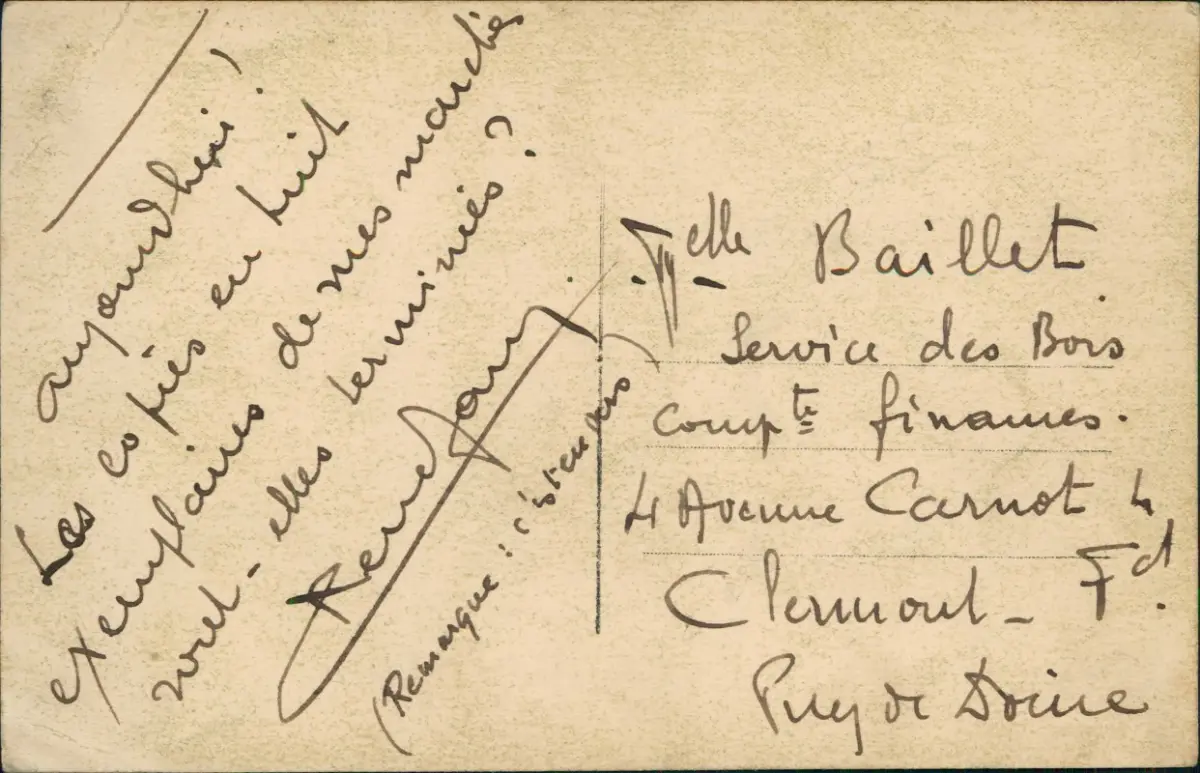 aujourd'hui !
Les copies en huit
exemplaires de mes marchés
sont-elles terminées ?
(Remarque : c'est en vers
Melle Baillet
Service des Bois
compte finances.
4 Avenue Carnot 4
Clermont-Fd.
Puy de Dôme